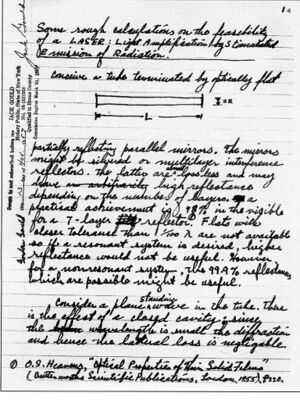 1
Some rough calculations on the feasibility
of a LASER: Light Amplification by Stimulated
Emission of Radiation.
Conceive a tube terminated by optically flat
L
partially reflecting parallel mirrors. The mirrors
might be silvered or multilayer interference
reflectors. The latter are lossless and may
have high reflectance
depending on the number of layers. A
practical achievement is 98% in the visible
for a 7-layer reflector. Flats with
closer tolerance than 1/100 λ are not available
so if a resonant system is desired, higher
reflectance would not be useful. However
for a nonresonant system, the 99.9% reflectances
which are possible might be useful.
Consider a plane standing wave in the tube. There
is the effect of a closed cavity; since
the wavelength is small the diffraction
and hence the lateral loss is negligable.
① O.S. Heavens, "Optical Properties of Thin Solid Films"
(Butterworths Scientific Publications, London, 1955), p220.
JACK GOULD
Notary Public, State of New York
Qualified in Bronx County
Commission Expires March 30,
Sworn to and subscribed before me
Jack Gould
Gordon Gould